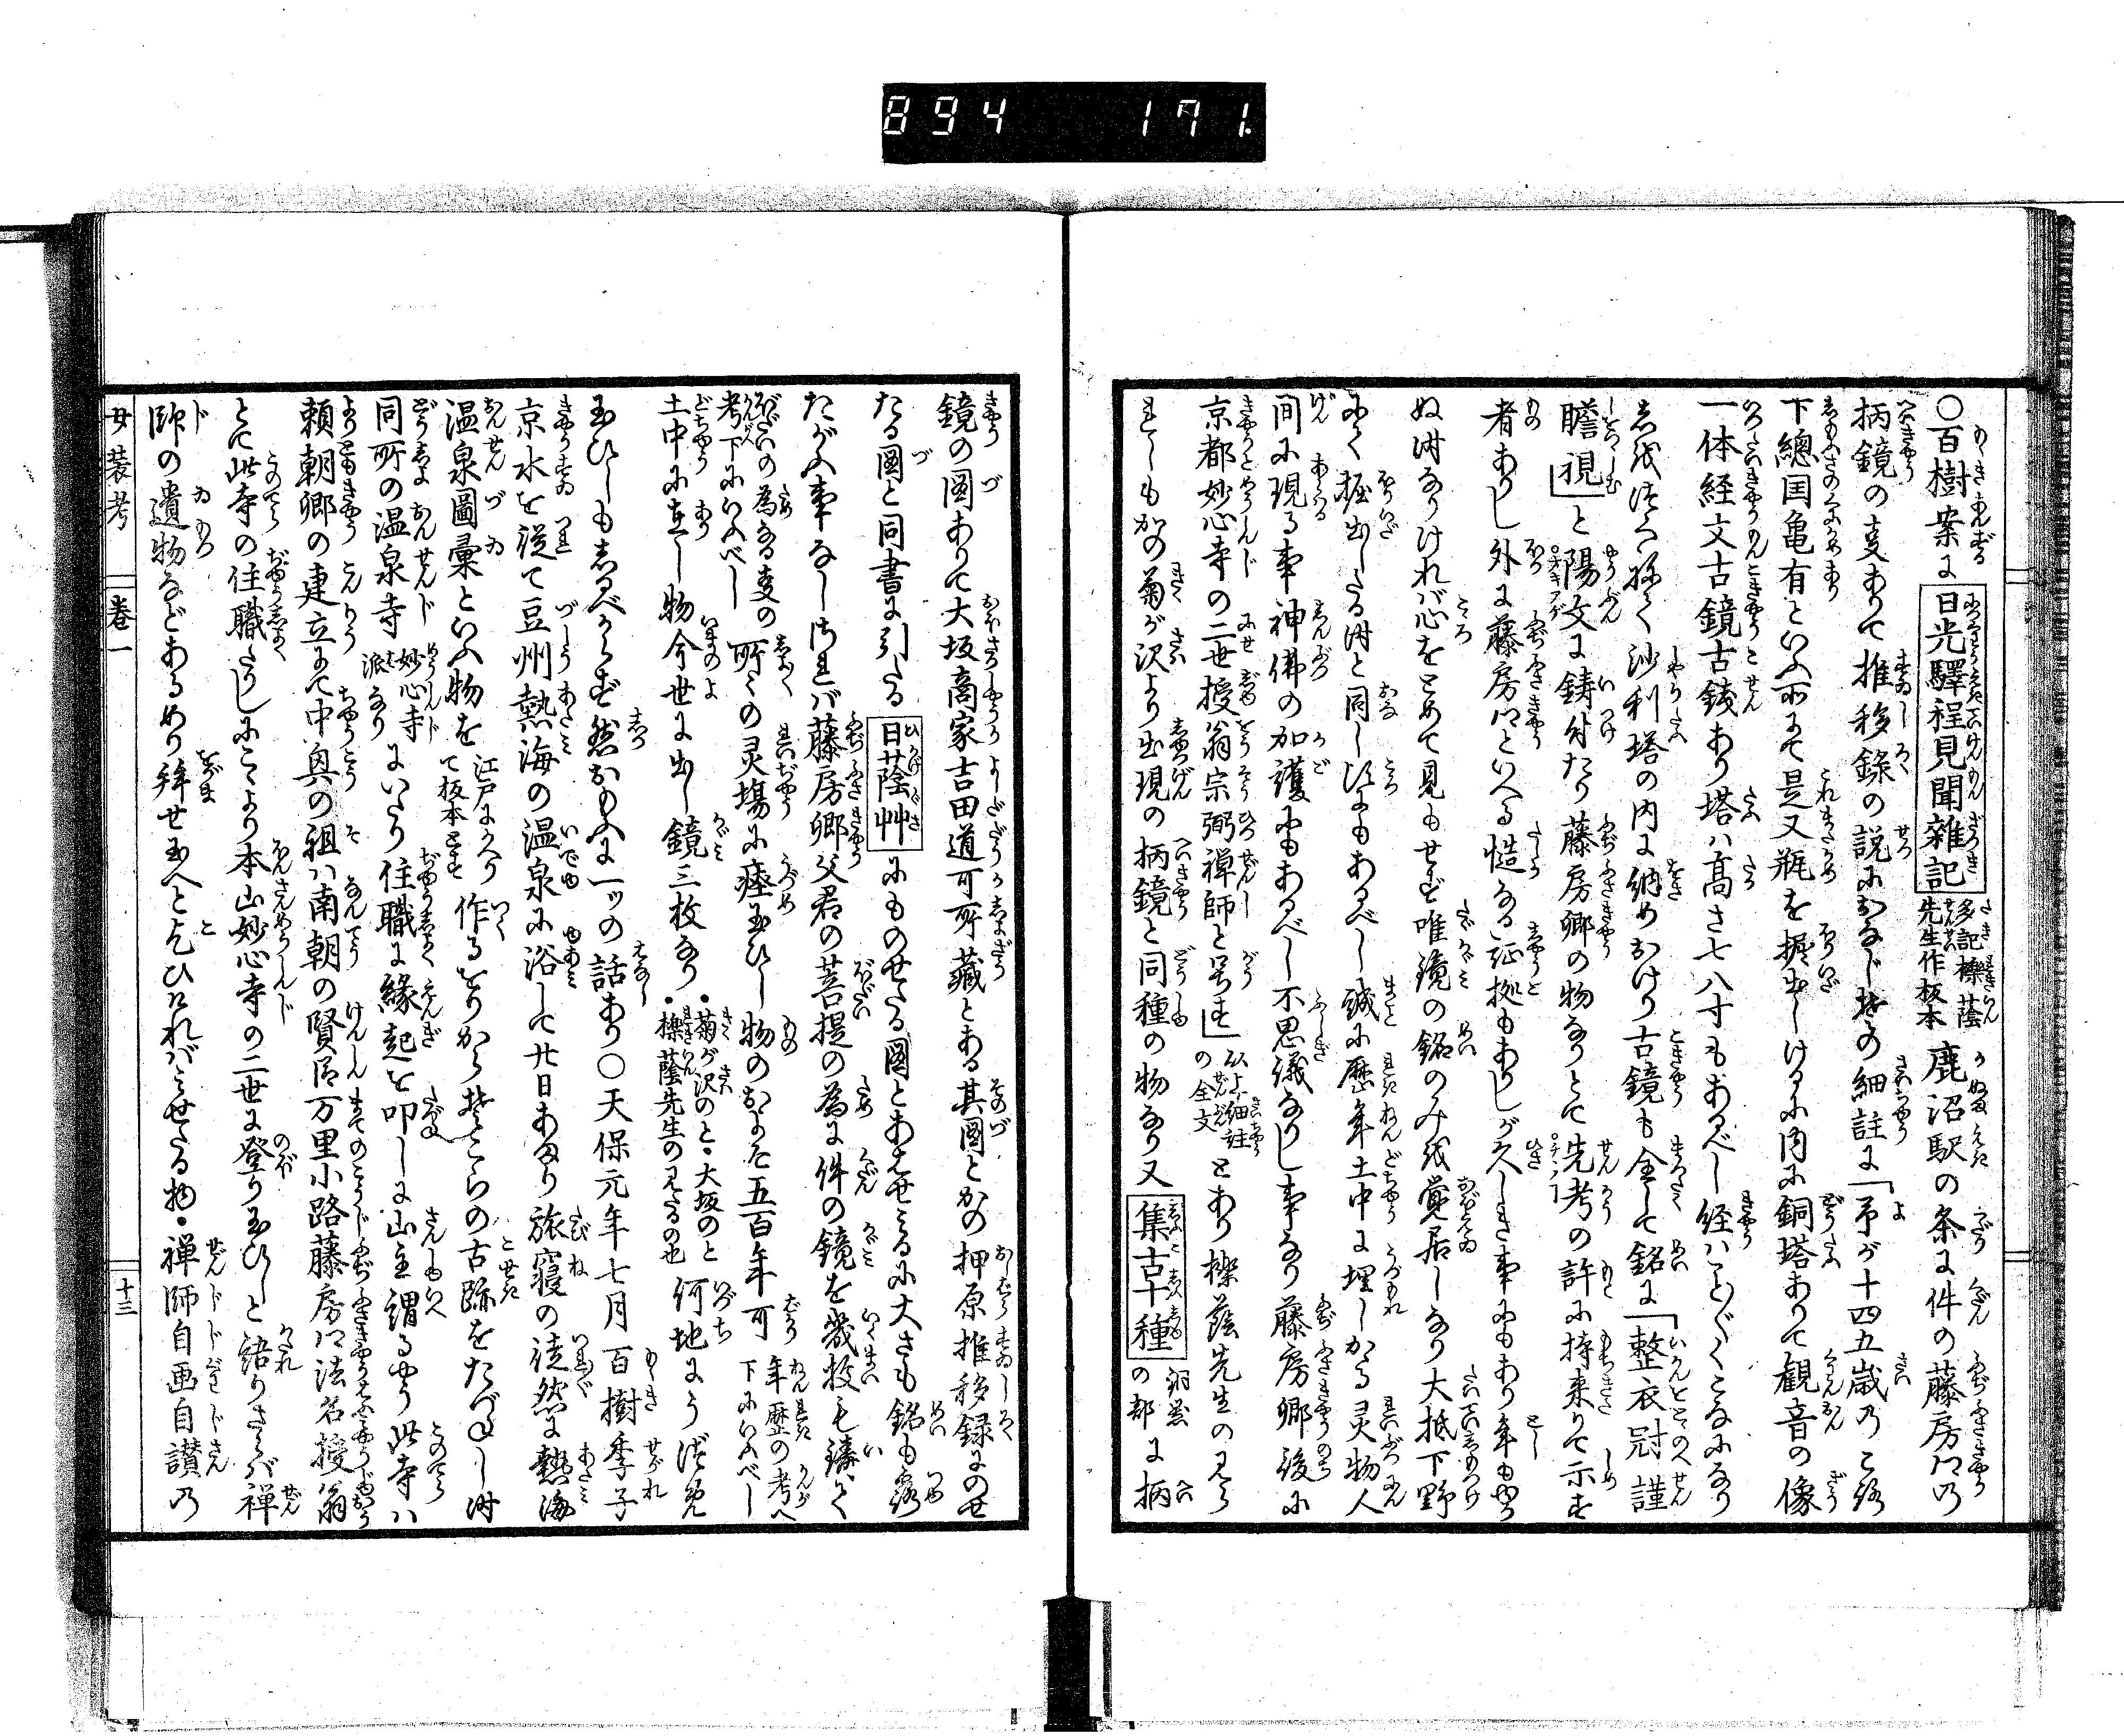 894 191.
○百樹案に日光驛程見聞雜記多記櫟蔭先生作板本鹿沼駅の条に件の藤房卿乃
柄鏡の事ありて推移錄の説におなじ其の細註に「予が十四五歳乃ころ
下總国亀有といふ所にて是又瓶を掘出しけるに内に銅塔ありて觀音の像
一体経文古鏡古銭あり塔ハ高さ七八寸もあるべし経ハことごとくこなになり
沙利塔の内に納めおけり古鏡も全して銘に「整衣冠謹
瞻視」と陽文に鋳付たり藤房卿の物なりとて先考の許に持来りて示す
者ありし外に藤房卿といへる慥なる証拠もありしが久しき事にもあり年もゆか
ぬ時なりければ心をとめて見もせず唯鏡の銘のみ覚居しなり大抵下野
にて掘出したる時と同じ頃にもあるべし誠に歴年土中に埋しかゝる灵物人
间に現る事神佛の加護にもあるべし不思議なりし事なり藤房卿後に
京都妙心寺の二世授翁宗弼禅師と号す」以上細註の全文とあり櫟蔭先生の見ら
れしもかの菊が沢より出現の柄鏡と同種の物なり又集古十種銅器の部に柄
鏡の図ありて大坂商家吉田道可所藏とある其図とかの押原推移録にのせ
たる図と同書に引たる日蔭艸にものせたる図とあはせみるに大さも銘も露
たがふ事なしされバ藤房卿父君の菩提の為に件の鏡を幾枚も鋳いて
ぼだいの為なる事の考下にいふべし所々の灵場に瘞玉ひし物のおよそ五百年可年歴の考へ下にいふべし
土中に在し物今世に出し鏡三枚なり・菊が沢のと・大坂のと・櫟蔭先生の見たるの也何地にうづめ
玉ひしもしるべからず然おもふに一ッの話あり○天保元年七月百樹季子
京水を従て豆州熱海の温泉に浴して廿日あまり旅寝の徒然に熱海
温泉圖彙といふ物を江戸にかへりて板本とす作るをりから其こらの古跡をたづねし时
同所の温泉寺妙心寺派なりにいたり住職に緣起を叩しに山主謂るやう此寺ハ
頼朝卿の建立にて中奥の祖ハ南朝の賢臣万里小路藤房卿法名授翁
とて此寺の住職たりしにこゝより本山妙心寺の二世に登り玉ひしと語りさらバ禅
師の遺物などあるめり拝せ玉へと乞ひければみせたる物・禅師自画自讃乃
女装考 卷一 十三